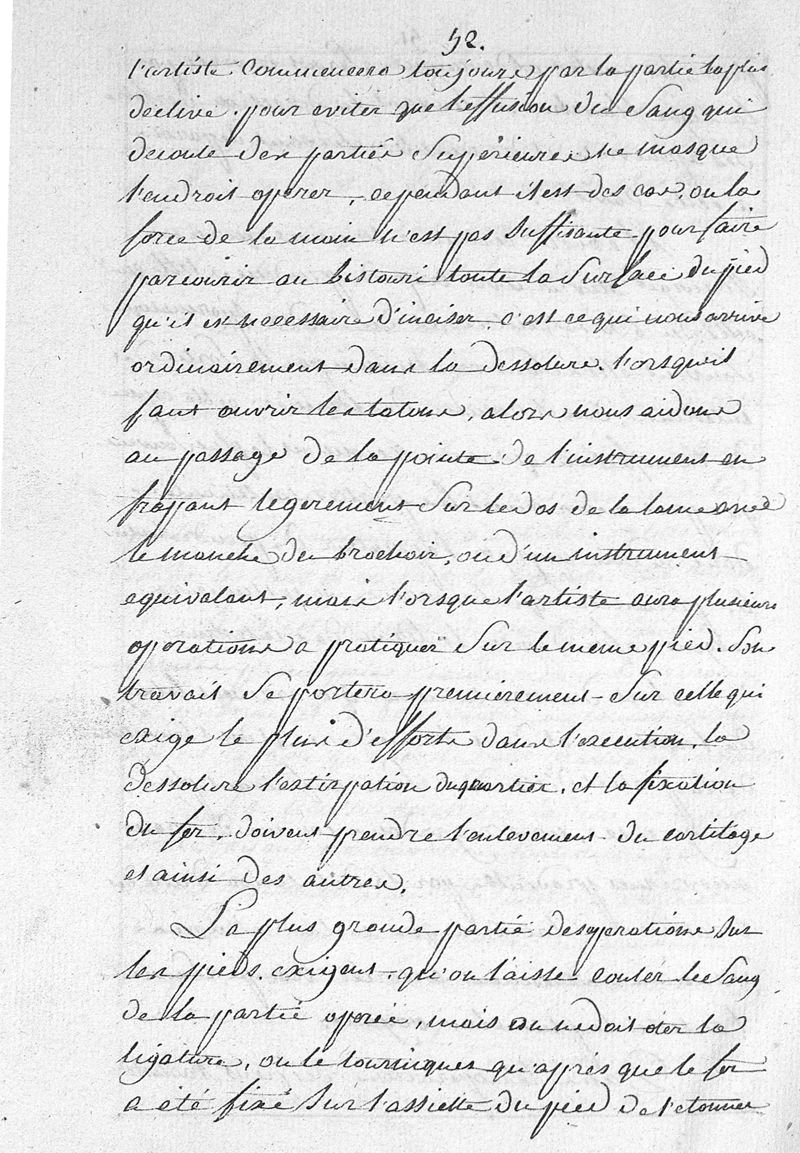 52.
l'artiste commencera toujours par la partie la plus
declive. pour eviter que l'effusion du Sang qui
decoule des partiés Supérieures ne masque
l'endroit operer, cependant il est des cas, ou la
force de la main n'est pas Suffisante pour faire
parcourir au bistouri toute la Surface du pied
qu'il est necessaire d'inciser, c'est ce qui nous arrive
ordinairement dans la dessolure. l'orsqu'il
faut ouvrir les talons, alors nous aidons
au passage de la pointe de l'instrument en
frappant legerement Sur le dos de la lame avec
le manche du brochoir, ou d'un instrument
equivalant, mais l'orsque l'artiste aura plusieurs
operations a pratiquer Sur le meme pied. Son
travail Se portera premièrement Sur celle qui
exige le plus d'efforts dans l'execution, la
dessolure l'extirpation du quartier, et la fixation
du fer, doivent l'enlevement du cartilage
et ainsi des autres.
La plus grande partié des operations Sur
les pieds, exigent, qu'on l'aisse couler le Sang
de la partié operée, mais on ne doit oter la
ligature, ou le tourniquet qu'aprés que le fer
a été fixé Sur l'assiette du pied de l'etonner